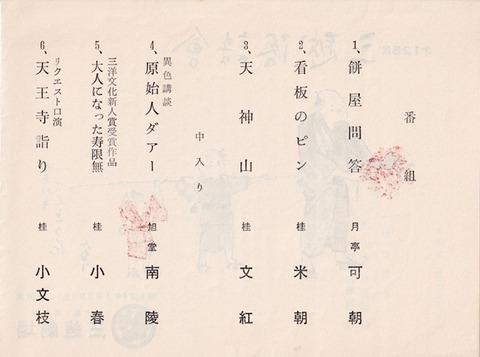 番組
1、餅屋問答 月亭可朝
2、看板のピン 桂米朝
3、天神山 桂文紅
中入り
異色講談
4、原始人ダアー 旭堂南陵
三洋文化新人賞受賞作品
5、大人になった寿限無 桂小春
リクエスト口演
6、天王寺詣り 桂小文枝